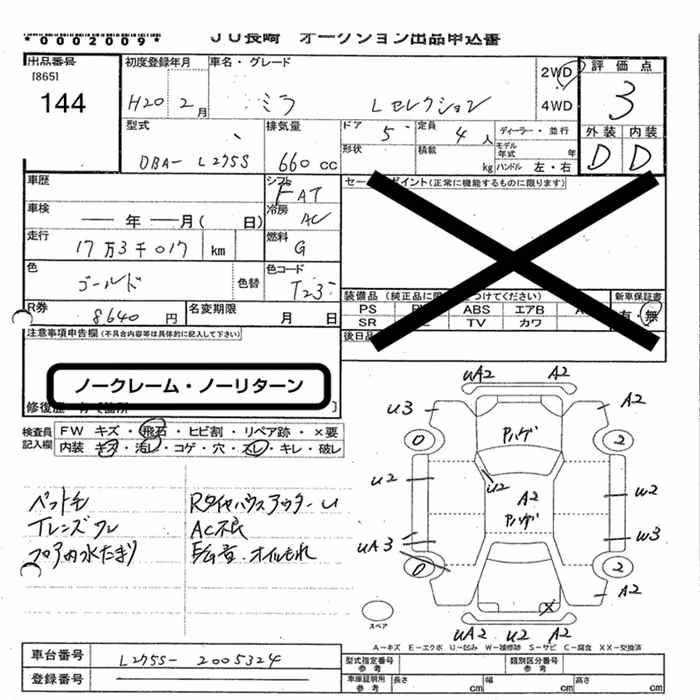 *0002009* JU長崎 オークション出品申込書
出品番号 初度登録年月 車名・グレード 2WD 評価点
[865]
144 H20 2月 ミラ Lセレクション 4WD 3
型式 排気量 ドア 5 定員 4人 ディーラー・並行 外装 内装
DBA-L275S 660cc 形状 積載 kg モデル年式 年 ハンドル 左・右 D D
車歴 シフト FAT セールスポイント(正常に機能するものに限ります)
車検 ー年ー月(日) 冷房 AC
走行 17万3千017 km 燃料 G
色 ゴールド 色替 色コード T23 装備品 新車保証書
R券 8640円 名変期限 月 日 PS ABS エアB 有・無
SR TV カワ
注意事項申告欄(不具合内容等は具体的に記入して下さい) 後日品
ノークレーム・ノーリターン
検査員記入欄 FW キズ・飛石・ヒビ割・リペア跡・×要
内装 キズ・汚レ・コゲ・穴・スレ・キレ・破レ
uA2 A2
u3 A2
0 Aハゲ 2
u2 u2 A2 u2
Aハゲ
uA3 w3
0 2
X A2
uA2 u2 A2
ペット毛 RタイヤハウスアウターU
Tレンズワレ AC不良
フロア内水たまり E/G音、オイルもれ
スペア
A-キズ E-エクボ U-凹み W-補修跡 S-サビ C-腐食 XX-交換済
車台番号 L275S-2005324 型式指定番号 参考 類別区分番号 参考
登録番号 車庫証明用 参考 長さ cm 幅 cm 高さ cm